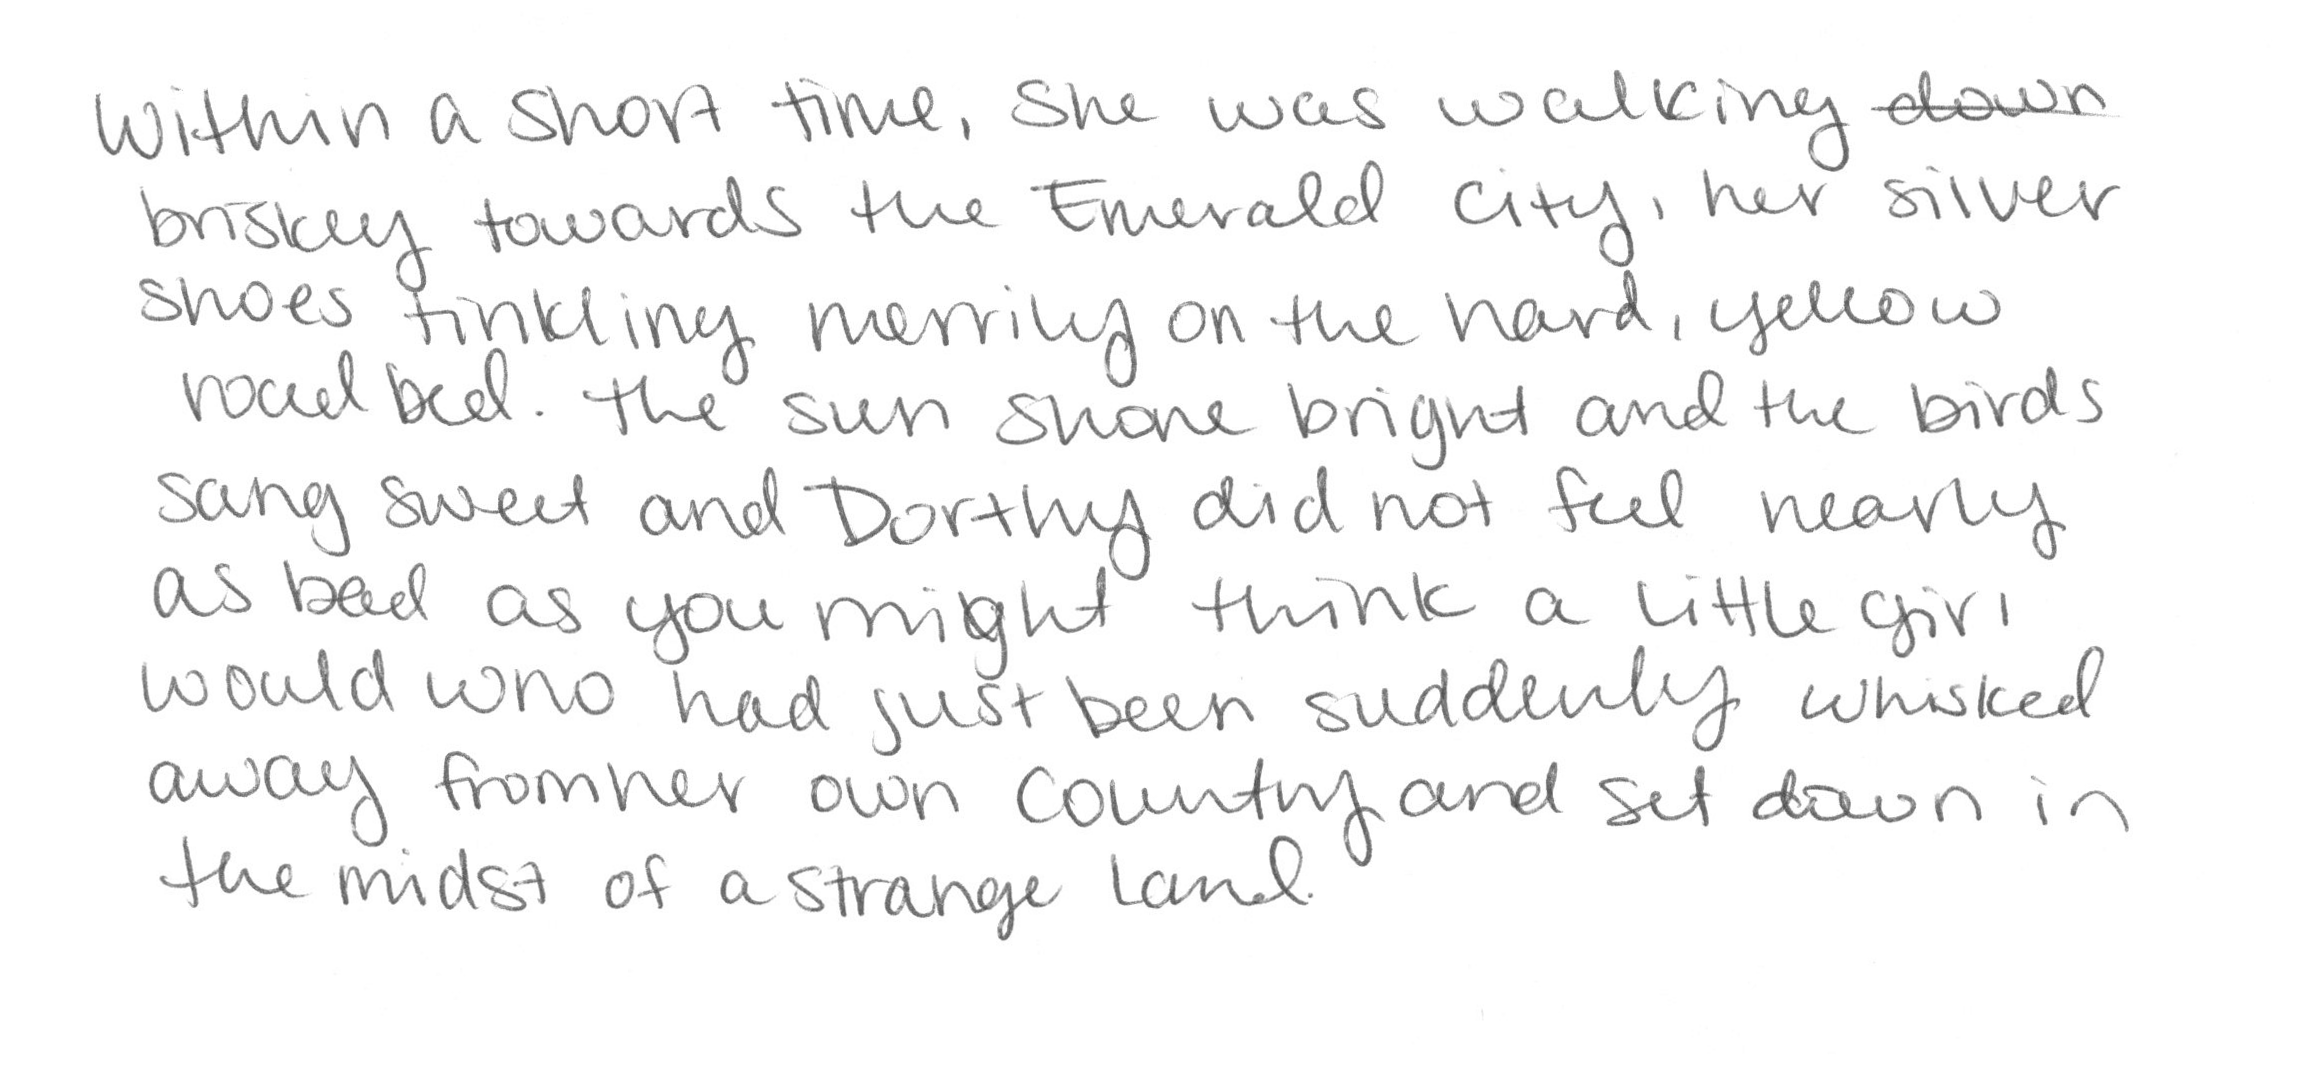 Within a short time, she was walking ~~down~~
briskey towards the Emerald City, her silver
shoes tinkling merrily on the hard, yellow
road bed. the sun shone bright and the birds
sang sweet and Dorthy did not feel nearly
as bad as you might think a little girl
would who had just been suddenly whisked
away from her own country and set down in
the midst of a strange land.